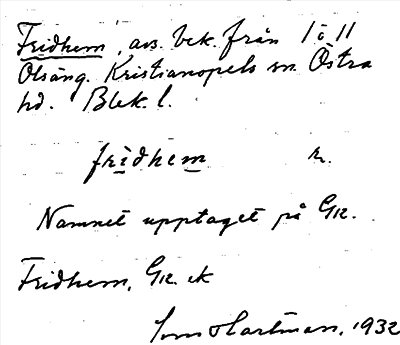 Fridhem, avs. bek. från 1 o 11
Olsäng. Kristianopels sn. Östra
hd. Blek. l.
fridhem n.
Namnet upptaget på GK.
Fridhem, GK. ek
Hartman, 1932